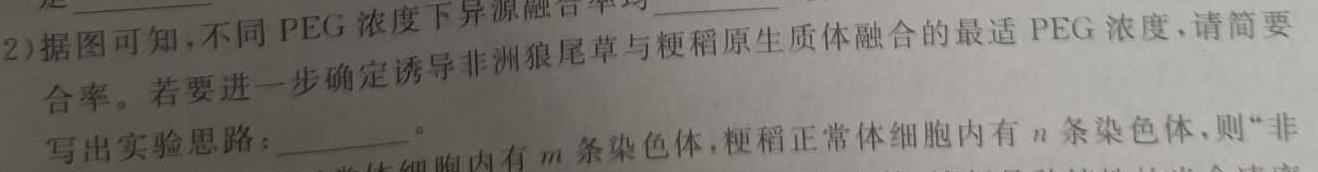 2)据图可知,不同 PEG 浓度下异源融合率均________
合率。若要进一步确定诱导非洲狼尾草与粳稻原生质体融合的最适 PEG 浓度,请简要
写出实验思路:________。
常体细胞内有 m 条染色体,粳稻正常体细胞内有 n 条染色体,则“非